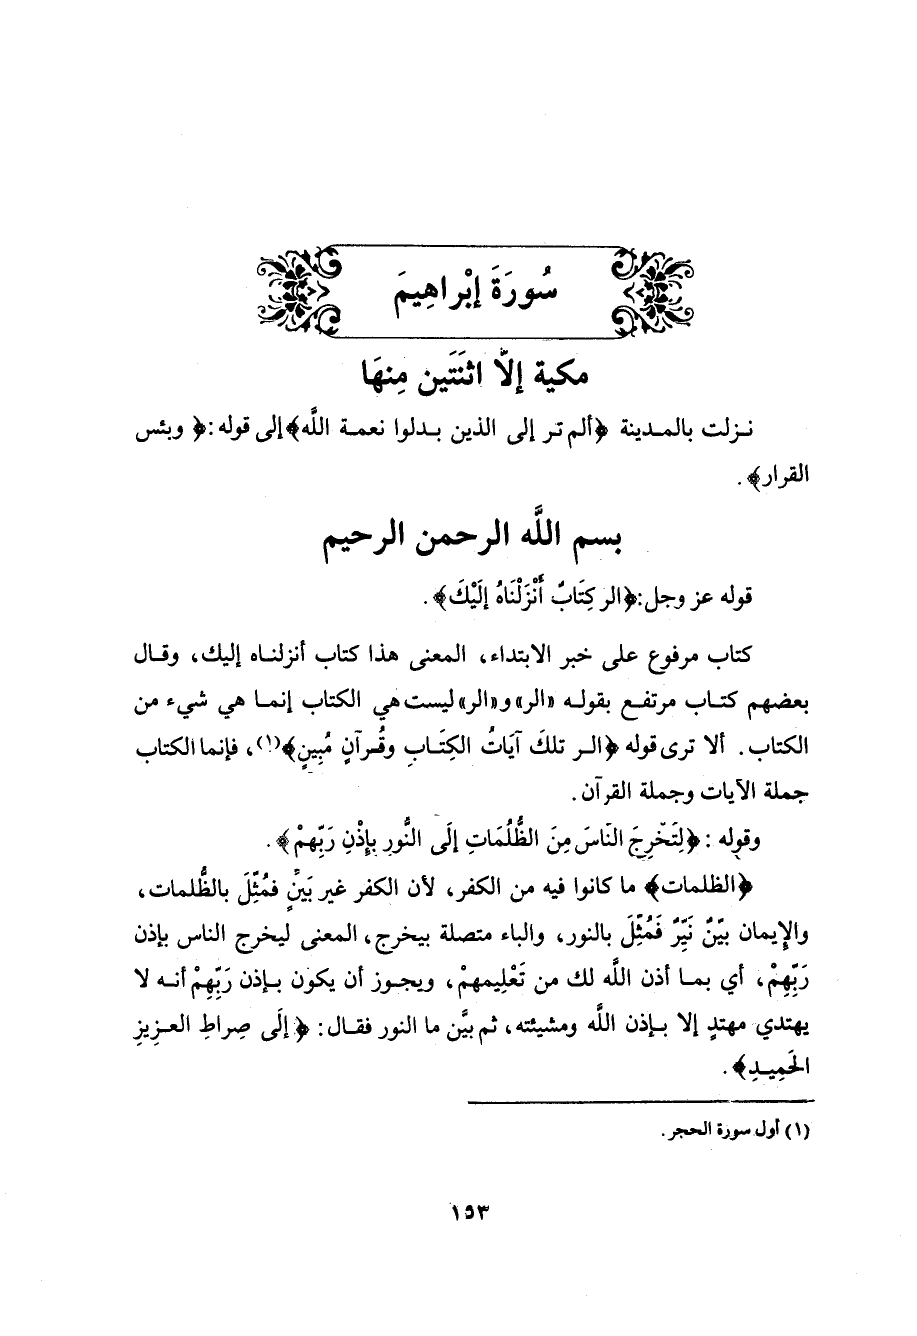 سُورَةَ إبْراهِيمَ
مكية إلاّ اثنَتَين مِنهَا
نـزلت بالمـدينة ﴿ألم تر إلى الذين بـدلوا نعمـة اللَّه﴾ إلى قوله :﴿ وبئس
القرار﴾ .
بسم اللَّه الرحمن الرحيم
قوله عز وجل:﴿الر كِتَابٌ أَنْزَلْنَاهُ إلَيْكَ﴾ .
كتاب مرفوع على خبر الابتداء، المعنى هذا كتاب أنزلنـاه إليك، وقـال
بعضهم كتـاب مرتفـع بقولـه «الر» و«الر» ليست هي الكتاب إنمـا هي شيء من
الكتاب. ألا ترى قوله ﴿الـر تلكَ آيَاتُ الكِتَـابِ وقُـرآنٍ مُبِينٍ﴾(١)، فإنما الكتاب
جملة الآيات وجملة القرآن .
وقوله : ﴿لِتُخْرِجَ النَاسَ مِنَ الظُّلُمَاتِ إلَى النُّورِ بإِذْنِ رَبِّهِمْ﴾ .
﴿الظلمات﴾ ما كانوا فيه من الكفر، لأن الكفر غير بَيِّنٍ فمُثِّلَ بالظُّلمات،
والإيمان بيِّنٌ نَيِّرٌ فَمُثِّلَ بالنور، والباء متصلة بيخرج، المعنى ليخرج الناس بإذن
رَبِّهِمْ، أي بمـا أذن اللَّه لك من تَعْلِيمهمْ، ويجـوز أن يكون بـإذن رَبِّهِمْ أنـه لا
يهتدي مهتدٍ إلا بـإذن اللَّه ومشيئته، ثم بيَّن ما النور فقـال: ﴿ إلَى صِراطِ العـزِيزِ
الحَمِيـدِ﴾ .
(١) أول سورة الحجر .
١٥٣